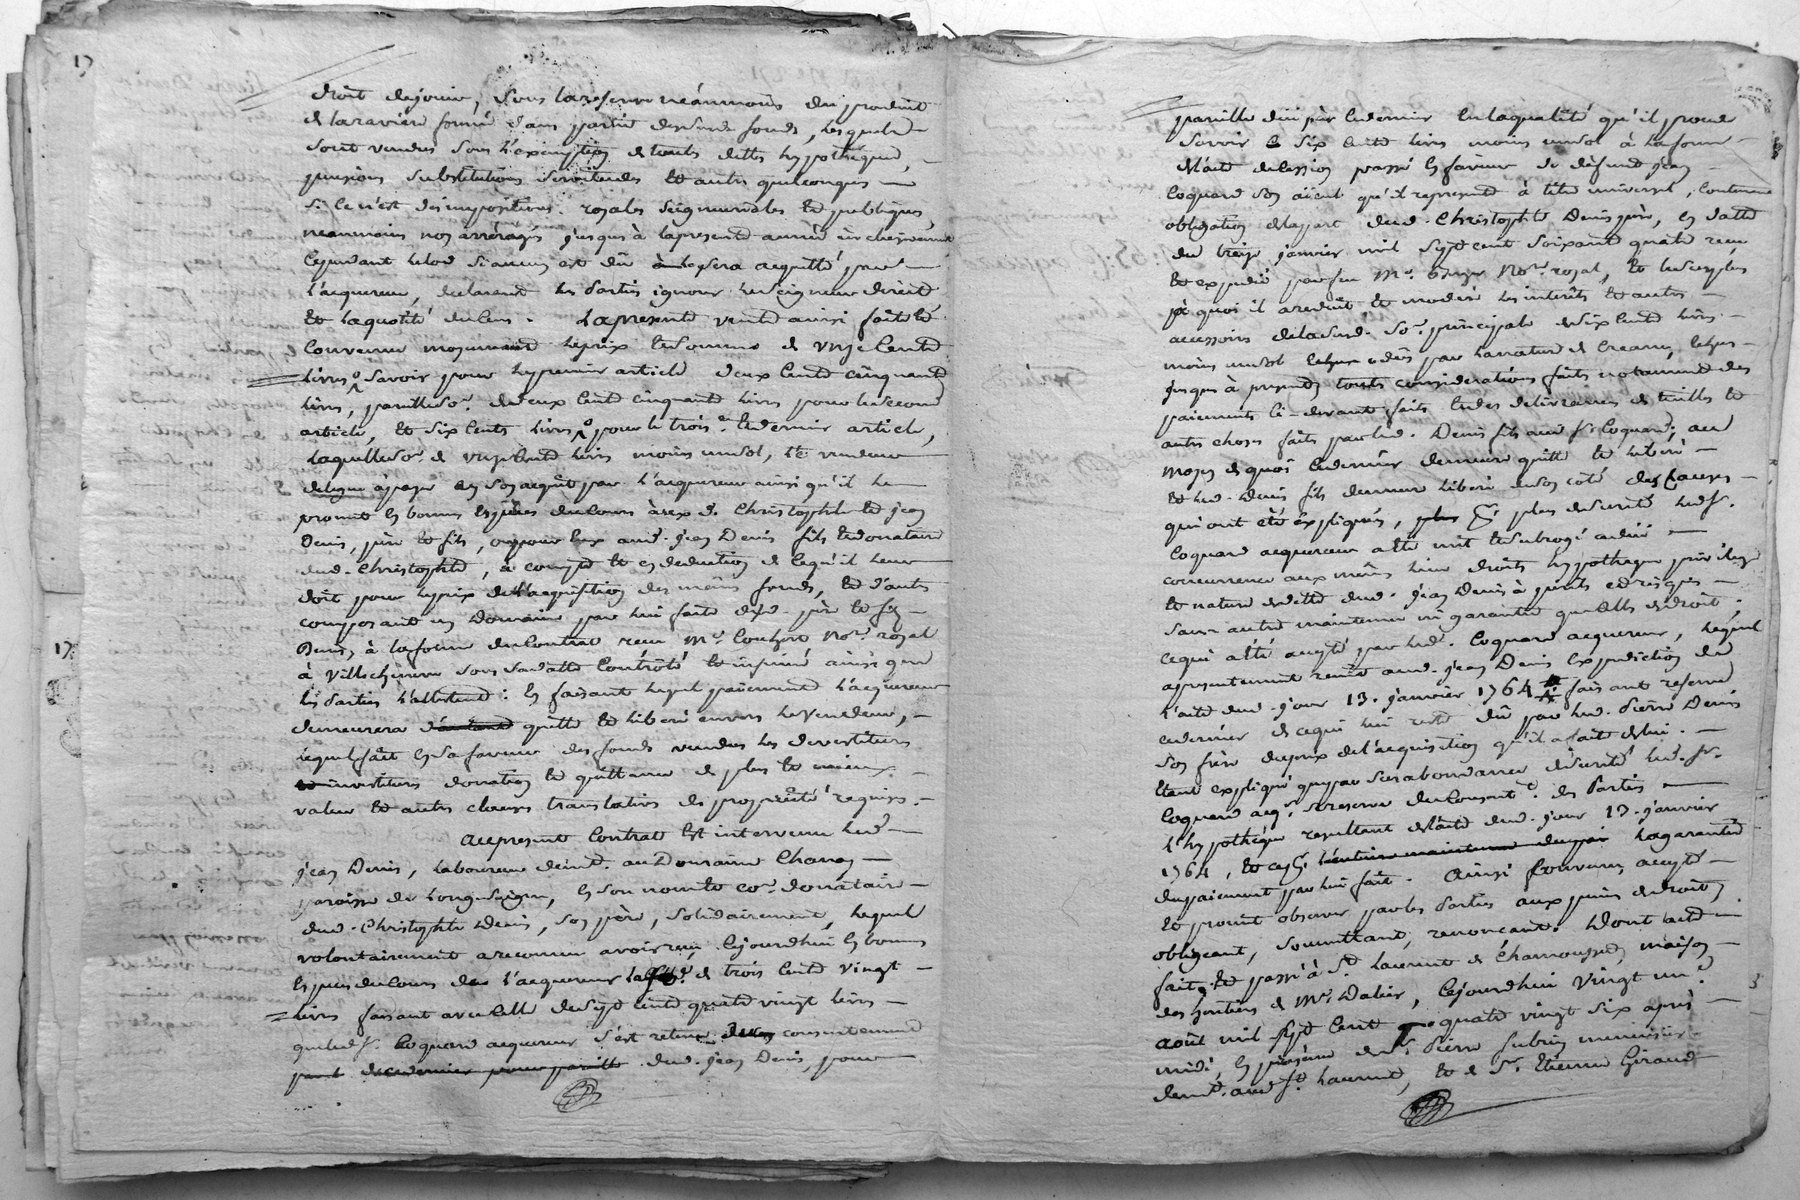 droit de jouir, sous la reserve néanmoins du produit
et la raviere formé dans partie desdits fonds, lesquels
sont vendus sous l'exemption de toutes dettes hypothèques,
pensions substitutions servitudes et autres quelconques
si ce n'est des impositions royales seigneuriales et publiques,
neanmoins non arréragés jusques à la presente année
cependant le lod si aucun est dû sera acquitté par
l'acquereur, declarant les parties ignorer le seigneur direct
et la quotité du cens. La presente vente ainsi faite et
convenue moyennant le prix et somme de onze cents
livres savoir pour le premier article deux cents cinquante
livres, pareille so.e de deux cents cinquante livres pour le second
article, et six cents livres pour le trois.e et dernier article,
laquelle so.e de onze cents livres moins un sol, le vendeur
delegue à payer en son acquit par l'acquereur ainsi qu'il le
promet en bonnes espèces du cours à rex d. Christophle et jean
Denis, père et fils, ou pour eux aud. jean Denis fils et donataire
dud. Christophle, à compte et en deduction de ce qu'il leur
doit pour le prix de l'acquisition des mêmes fonds, et d'autres
composant un Domaine par lui faite desd. père et fils
Denis, à la forme du contrat reçu M.e Not.re royal
à Villechenève sous sa datte contrôlé et insinué ainsi que
les parties l'attestent: en faisant lequel paiement l'acquereur
demeurera quitte et liberé envers le vendeur,
lequel fait en sa faveur des fonds vendus les devestitures
investitures donation et quittance de plus et mieux
value et autres clauses translatives de proprieté requises.
Au present contrat est intervenu led.
jean Denis, laboureur demt. au Domaine Chanay
paroisse de Longessaigne, en son nom et co.e donataire
dud. Christophle Denis, son père, solidairement, lequel
volontairement a reconnu avoir reçu cejourdhui en bonnes
espèces du cours de l'acquereur la so.e de trois cents vingt
livres faisant avec celle de sept cents quatre vingt livres
que led. s.r Coquard acquereur s'est retenu du consentement
dud. jean Denis, pour
pareille dûe par ce dernier en la qualité qu'il procede
savoir six cents livres moins un sol à la forme
de l'acte de cession passé en faveur de défunt jean
Coquard son aïeul qu'il represente à titre universel, contenant
obligation de la part dud. Christophle Denis père, en datte
du treize janvier mil sept cent soixante quatre reçu
et expedié par feu M.e Not.re royal,
à quoi il a reduit et moderé les interêts et autres
accessoires de lad. so.e principale de six cents livres
moins un sol dûs par la nature de creance
jusques à present, toutes considerations faites notamment des
paiements ci-devant faits et des delivrances de tuilles et
autres choses faites par led. Denis fils aud s.r Coquard; au
moyen de quoi ce dernier demeure quitte et liberé
et led. Denis fils demeure liberé de son coté des causes
qui ont été expliquées, plus de sureté led s.r
Coquard acquereur a été mis et subrogé
concurrence aux mêmes lieu droits hypotheque privilege
et nature de dette dud. jean Denis à perils et risques
sans autre maintenue ni garantie que celle de droit;
ce qui a été accepté par led. Coquard acquereur, lequel
a presentement remis aud. jean Denis expedition de
l'acte dud. jour 13. janvier 1764 faisant reserve
ce dernier de ce qui lui reste dû par led. Pierre Denis
son frère du prix de l'acquisition qu'il a faite de lui.
Etant expliqué que par surabondance de sureté led. s.r
Coquard acq.r se reserve du consent.t des parties
l'hypothèque resultant de l'acte dud. jour 13. janvier
1764, et la garantie
du paiement par lui fait. Ainsi convenu, accepté
et promis observer par les parties aux peines de droit,
obligeant, soumettant, renonçant. Dont acte
fait et passé à St. Laurent de Chamousset, maison
des heritiers de M.e Dalier, cejourdhui vingt un.e
août mil sept cent quatre vingt six après
midi, en presence de s.r Pierre Subrin menuisier
demt. aud St. Laurent, et de s.r Etienne Giraud